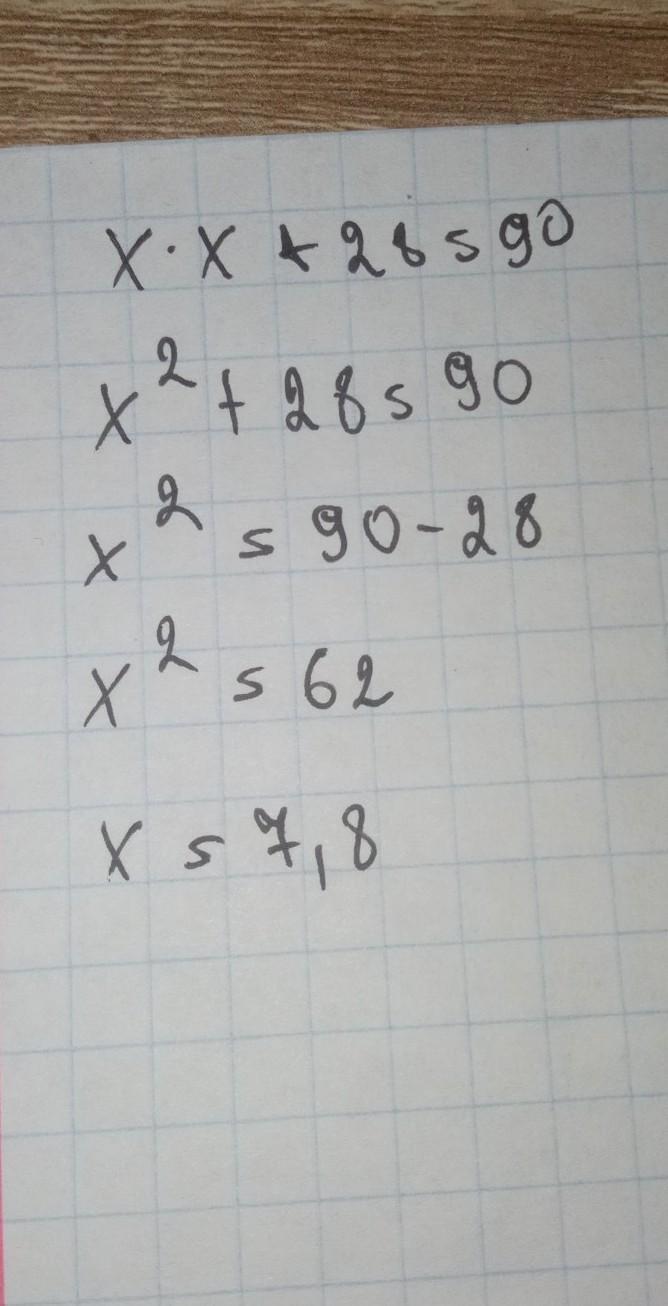 x · x + 28 = 90
x² + 28 = 90
x² = 90 - 28
x² = 62
x = 7,8